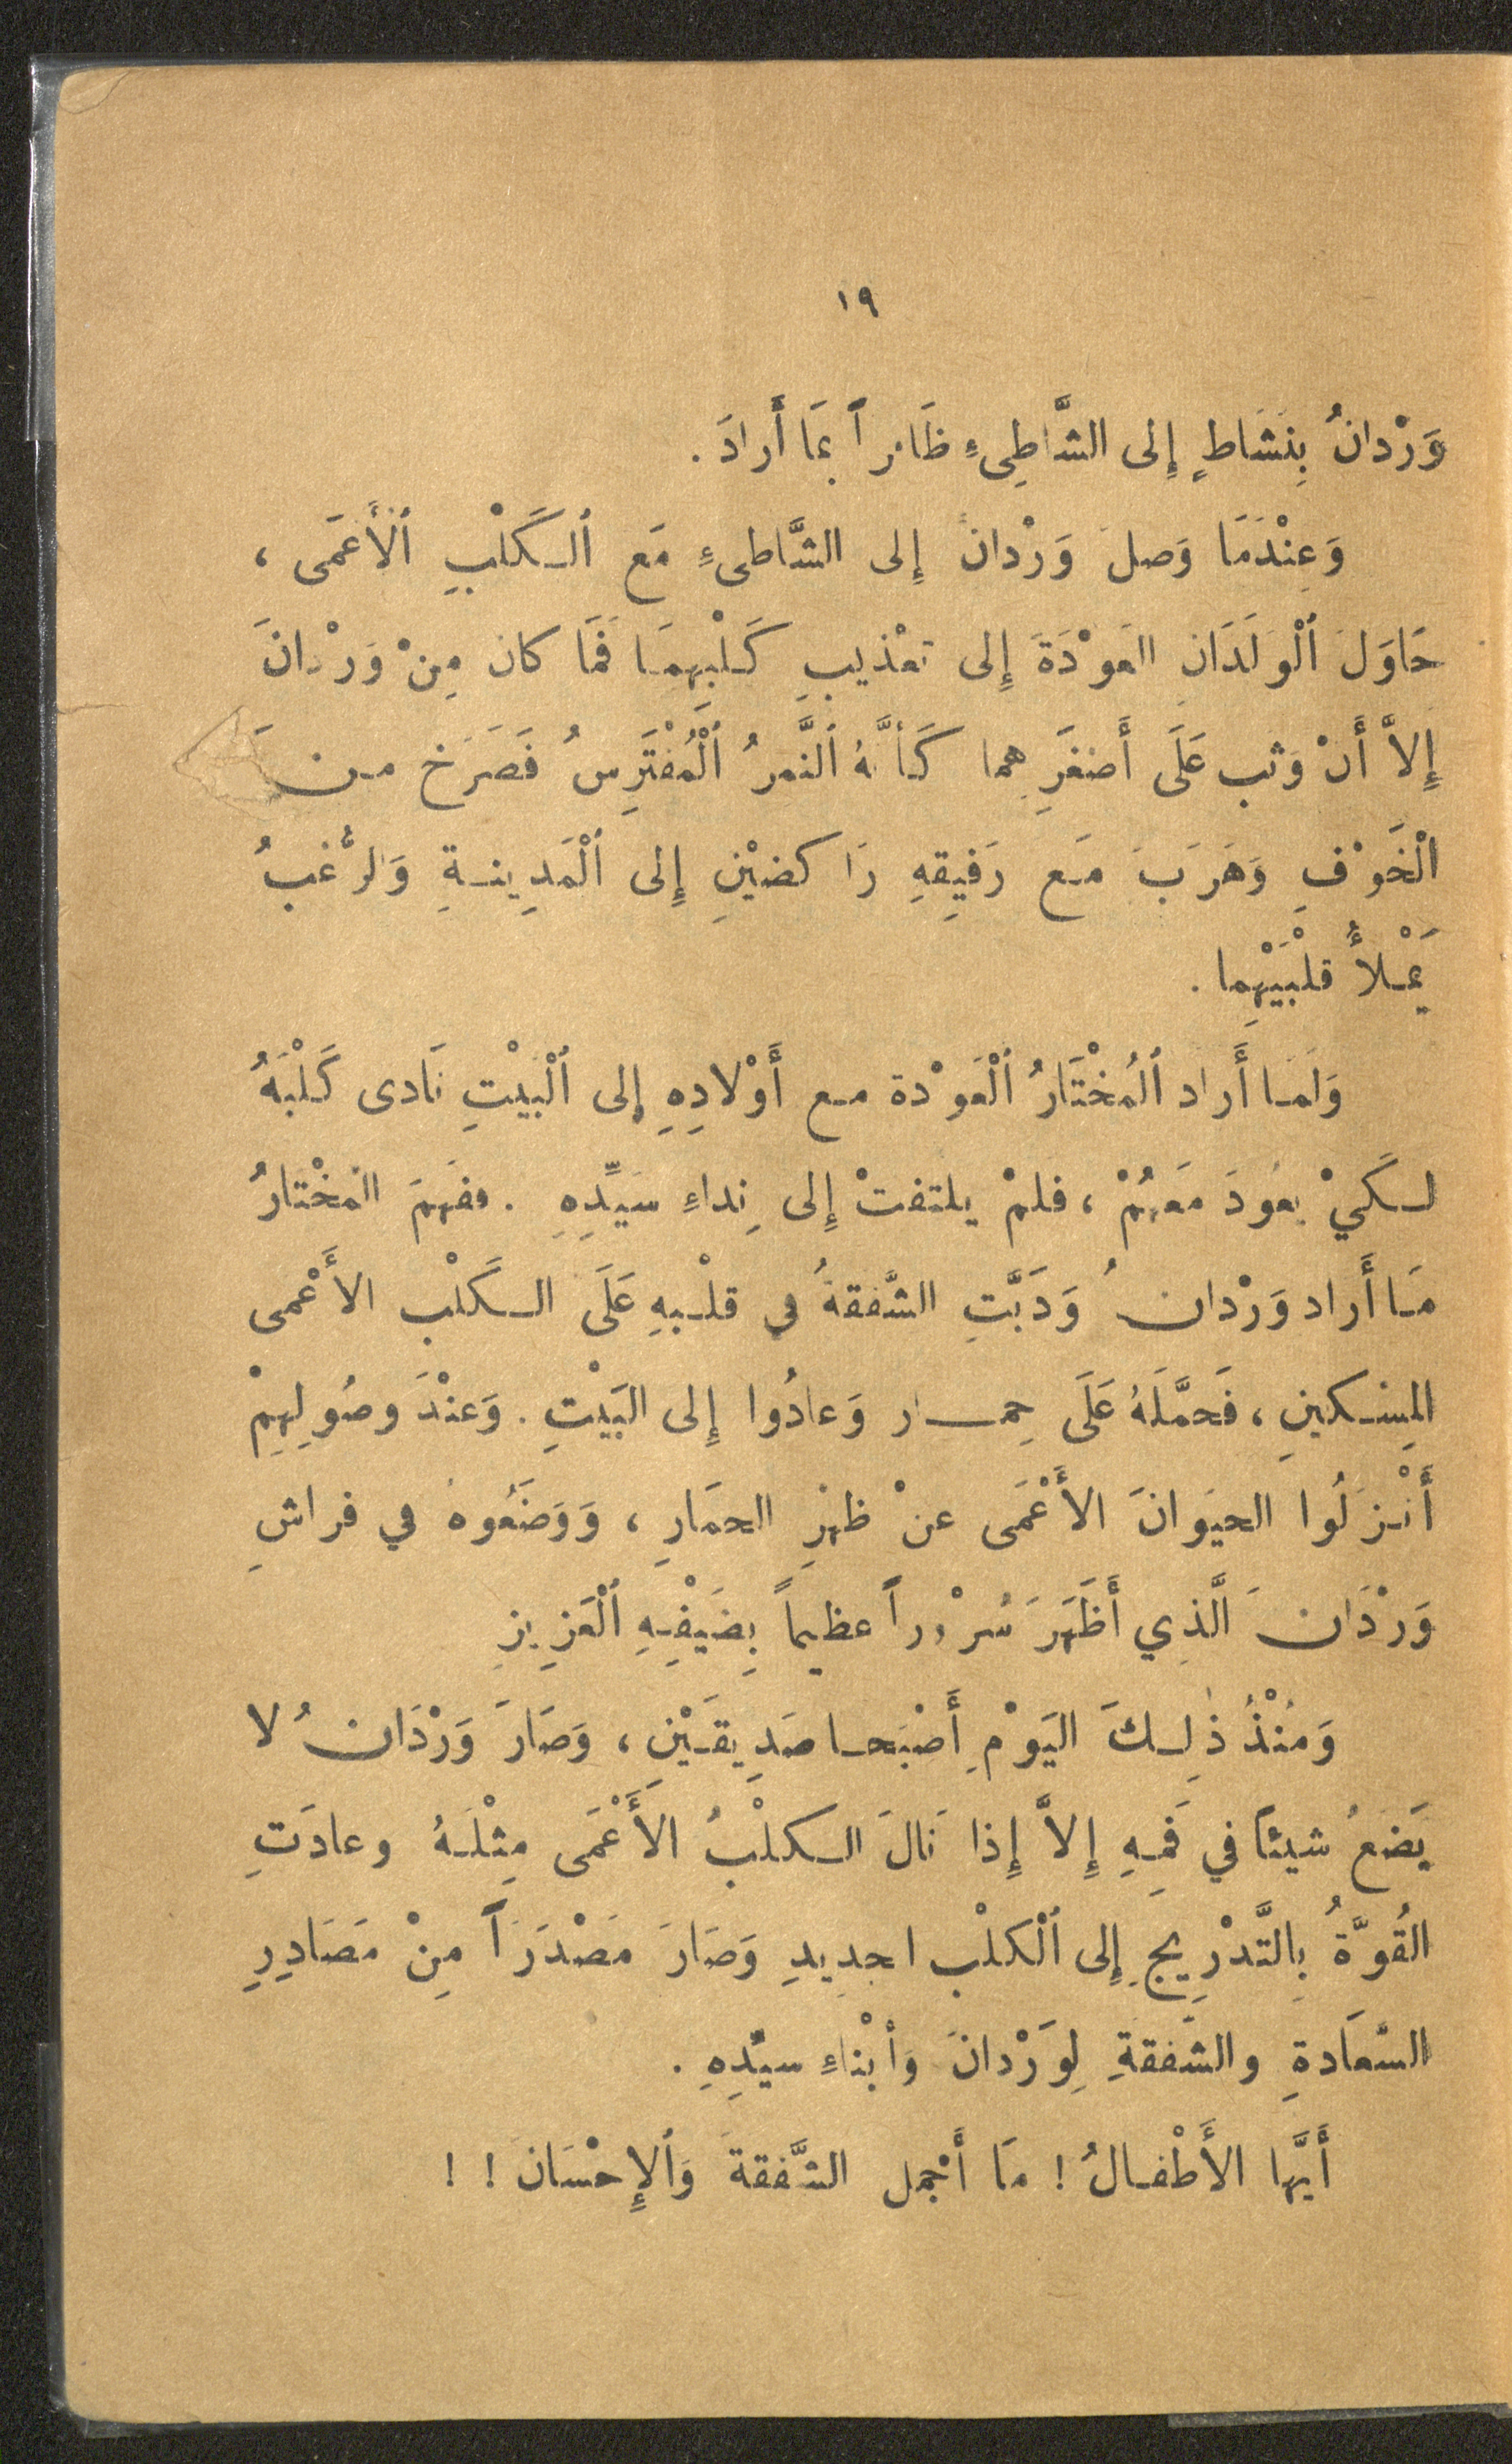 ١٩
وَرْدانُ بِنَشَاطٍ إِلى الشَّاطِىءِ ظَافراً بِمَا أَرادَ .
وَعِنْدَمَا وَصلَ وَرْدانَ إِلى الشَّاطىءِ مَع ٱلكَلْبِ ٱلأَعمَى ،
حَاوَلَ ٱلْوَلَدَانِ العَوْدَةَ إِلى تعْذيبِ كَلْبِهِمَا فَمَا كانَ مِنْ وَرْدَانَ
إِلاَّ أَنْ وَثب عَلَى أَصْغَرِهما كَأَنَّهُ ٱلنَّمرُ ٱلْمُفْتَرِسُ فَصَرَخ منَ
الْخَوْفِ وَهَرَبَ مَع رَفِيقِهِ رَاكضيْنِ إِلى ٱلْمَدِينةِ وَالرُّعْبُ
يَمْلأُ قلْبَيْهِما .
وَلَمَا أَراد ٱلمُخْتَارُ ٱلْعَوْدة مع أَوْلادِهِ إِلى ٱلْبَيْتِ نَادى كَلْبَهُ
لكَيْ يعُودَ مَعهُمْ ، فلمْ يلتفتْ إِلى نِداءِ سَيِّدِهِ . ففهمَ المُخْتارُ
مَا أَراد وَرْدانُ وَدَبَّتِ الشَّفقةُ في قلْبهِ عَلَى الكَلْب الأَعْمى
المِسْكينِ ، فَحمَّلَهُ عَلَى حِمار وَعادُوا إِلى البَيْتِ . وَعنْدَ وصُولِهِمْ
أَنْزَلُوا الحيَوانَ الأَعْمَى عنْ ظهْرِ الحمَارِ ، وَوَضَعُوهُ في فراشِ
وَرْدَانَ الَّذِي أَظَهَرَ سُرْوراً عظيماً بِضَيْفِهِ ٱلْعَزِيزِ
وَمُنْذُ ذٰلِكَ اليَوْمِ أَصْبَحا صَدِيقَيْنِ ، وَصَارَ وَرْدَانُ لا
يَضَعُ شيئاً في فَمِهِ إِلاَّ إِذا نَالَ الكلْبُ الأَعْمَى مِثْلَهُ وعادَتِ
القُوَّةُ بِالتَّدْرِيجِ إِلى ٱلْكلْب اجدِيدِ وَصَارَ مَصْدَرَاً مِنْ مَصَادِرِ
السَّعَادةِ والشَّفقةِ لِوَرْدانَ وَأَبْناءِ سيِّدِهِ .
أَيَّها الأَطْفالُ ! مَا أَجْمل الشَّفقةَ وَٱلإِحْسَانَ ! !